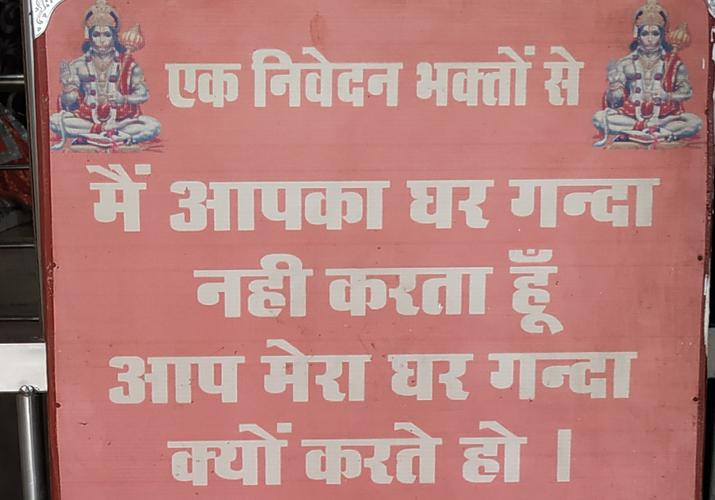 एक निवेदन भक्तों से
मैं आपका घर गन्दा
नही करता हूँ
आप मेरा घर गन्दा
क्यों करते हो ।